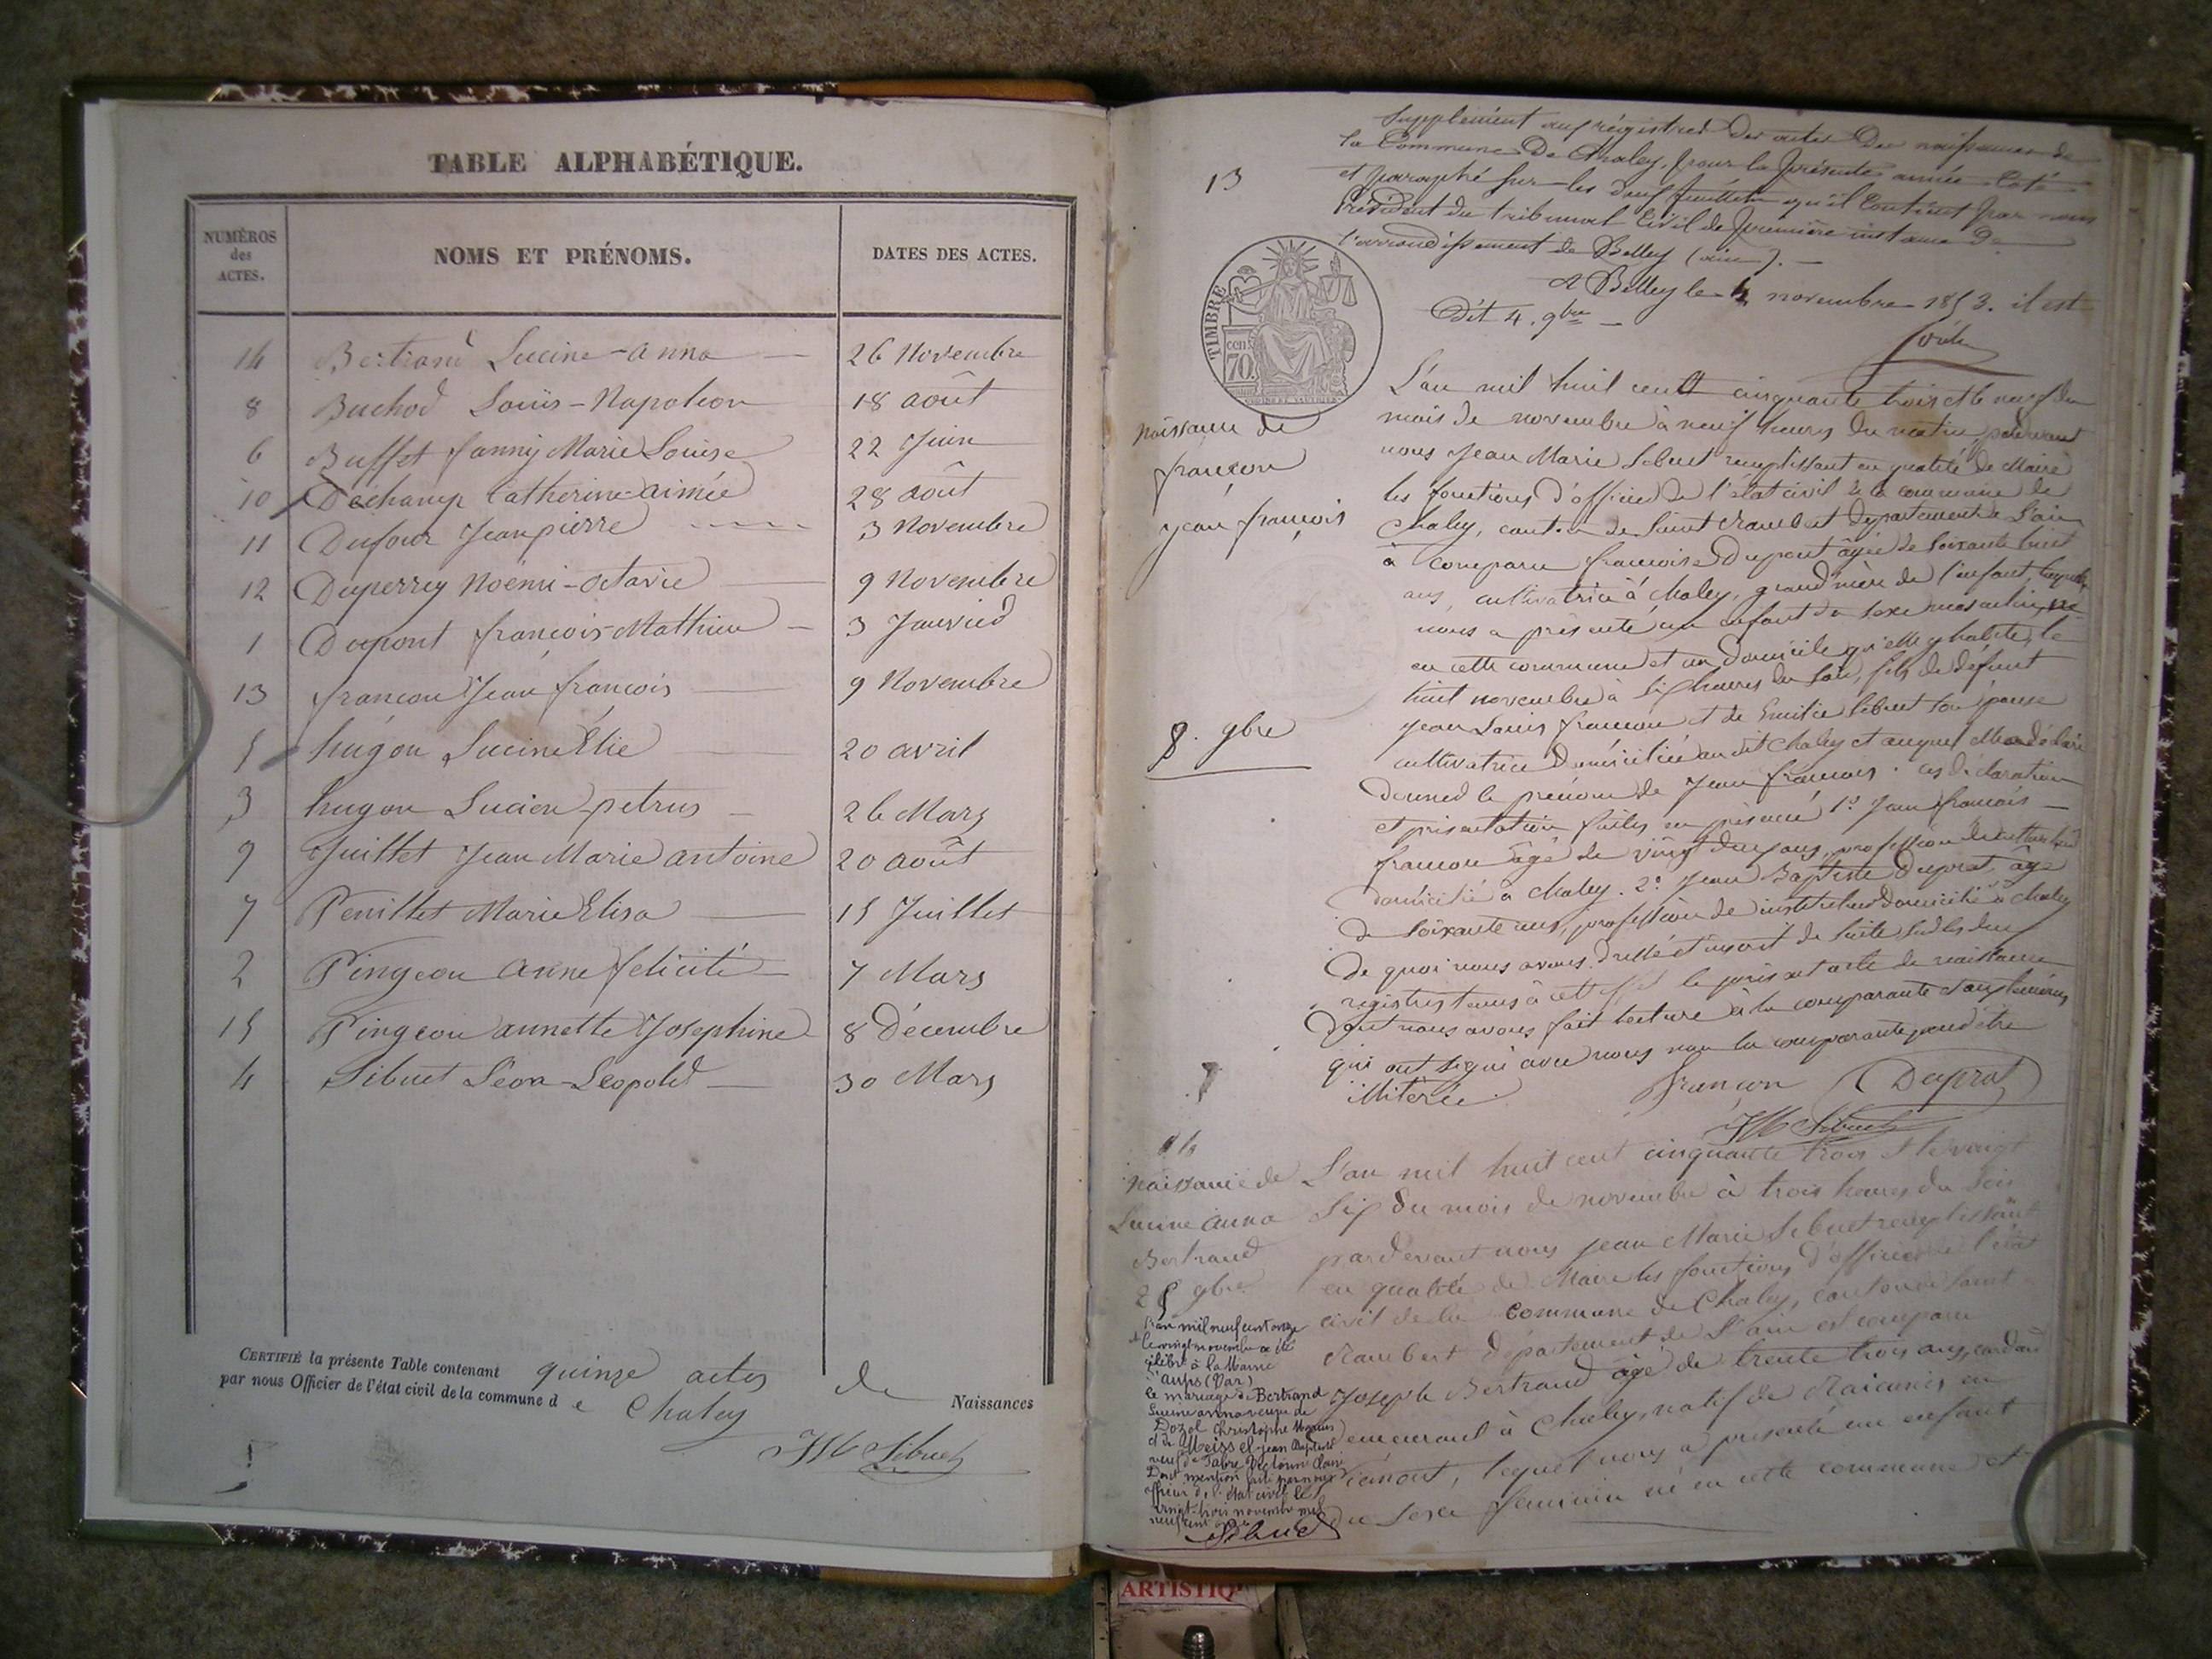 TABLE ALPHABÉTIQUE.
NUMÉROS des ACTES.
NOMS ET PRÉNOMS.
DATES DES ACTES.
14 Bertrand Lucine-Anna 26 Novembre
8 Buchod Louis-Napoleon 18 août
6 Buffet fanny Marie Louise 22 Juin
10 Dechamp Catherine-aimée 28 août
11 Dufour Jean pierre 3 Novembre
12 Duperrey Noémi-Octavie 9 Novembre
1 Dupont françois-Mathieu 3 Janvier
13 françon Jean françois 9 Novembre
5 hugon Lucine Élie 20 avril
3 hugon Lucien petrus 26 Mars
9 Juillet Jean Marie antoine 20 août
7 Penillet Marie Elisa 15 Juillet
2 Pingeon Anne felicité 7 Mars
15 Pingeon annette Josephine 8 Décembre
4 Sibuet Léon-Leopold 30 Mars
CERTIFIÉ la présente Table contenant quinze actes de Naissances
par nous Officier de l'état civil de la commune de Chaley
JM Sibuet
Supplément aux régistres des actes de naissances de
la Commune de Chaley, pour la présente année Coté
et paraphé sur les deux feuillets qu'il Contient par nous
Président du tribunal Civil de première instance de
l'arrondissement de Belley (ain).
A Belley le 4 novembre 1853. il est
dit 4. 9bre
TIMBRE
70 cen
13
Naissance de
françon
jean françois
8. 9bre
L'an mil huit cent cinquante trois et le neuf du
mois de novembre à neuf heures du matin, pardevant
nous Jean Marie Sibuet remplissant en qualité de Maire
les fonctions d'officier de l'état civil de la commune de
Chaley, canton de Saint Rambert département de l'ain
à comparu françoise Dupont âgée de soixante huit
ans, cultivatrice à Chaley, grand'mère de l'enfant, laquelle
nous a présenté un enfant du sexe masculin, né
en cette commune et au domicile qu'elle y habite, le
huit novembre à six heures du soir, fils de défunt
Jean Louis francon et de Emilie Sibuet son épouse
cultivatrice domiciliée au dit Chaley et auquel elle a déclaré
donner le prénom de Jean françois. ces déclaration
et présentation faites en présence 1º. Jean françois
francon âgé de vingt deux ans, profession de cultivateur
domicilié à Chaley. 2º. Jean Baptiste Duprat âgé
de soixante ans, profession de instituteur domicilié à Chaley
De quoi nous avons dressé et inscrit de suite sur les deux
registres tenus à cet effet le présent acte de naissance
Dont nous avons fait lecture à la comparante et aux témoins
qui ont signé avec nous non la comparante pour être
illitérée.
françon Duprat
JM Sibuet
14
Naissance de
Lucine Anna
Bertrand
25 9bre
L'an mil huit cent cinquante trois et le vingt
six du mois de novembre à trois heures du soir
pardevant nous Jean Marie Sibuet remplissant
en qualité de Maire les fonctions d'officier de l'état
civil de la commune de Chaley, canton de Saint
Rambert département de l'ain est comparu
Joseph Bertrand âgé de trente trois ans,
demeurant à Chaley, natif de en
Piémont, lequel nous a présenté un enfant
du sexe féminin né en cette commune et
L'an mil neuf cent onze
le vingt novembre a été
célébré à la Mairie
d'Aups (Var)
le mariage de Bertrand
Lucine anna veuve de
Dozol Christophe
et de Meissel jean Baptiste
veuf de Fabre Victorine Claire
Dont mention faite par nous
officier de l'état civil le
vingt-trois novembre mil
neuf cent onze
Sibuet
ARTISTIQ